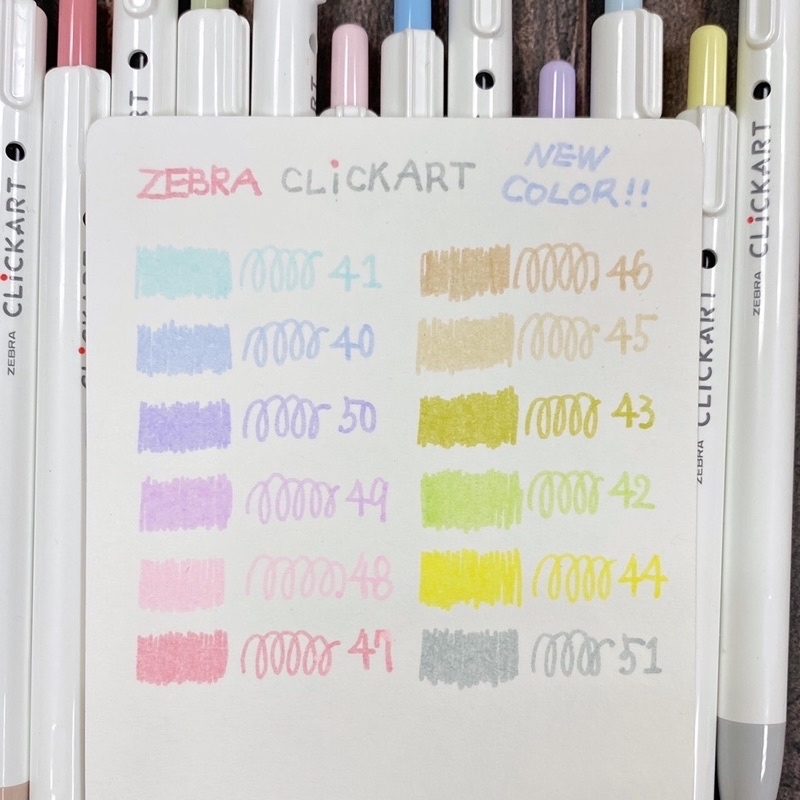 ZEBRA CLiCKART NEW COLOR!!
41
40
50
49
48
47
46
45
43
42
44
51
ZEBRA CLiCKART
ZEBRA CLiCKART
ZEBRA CLiCKART